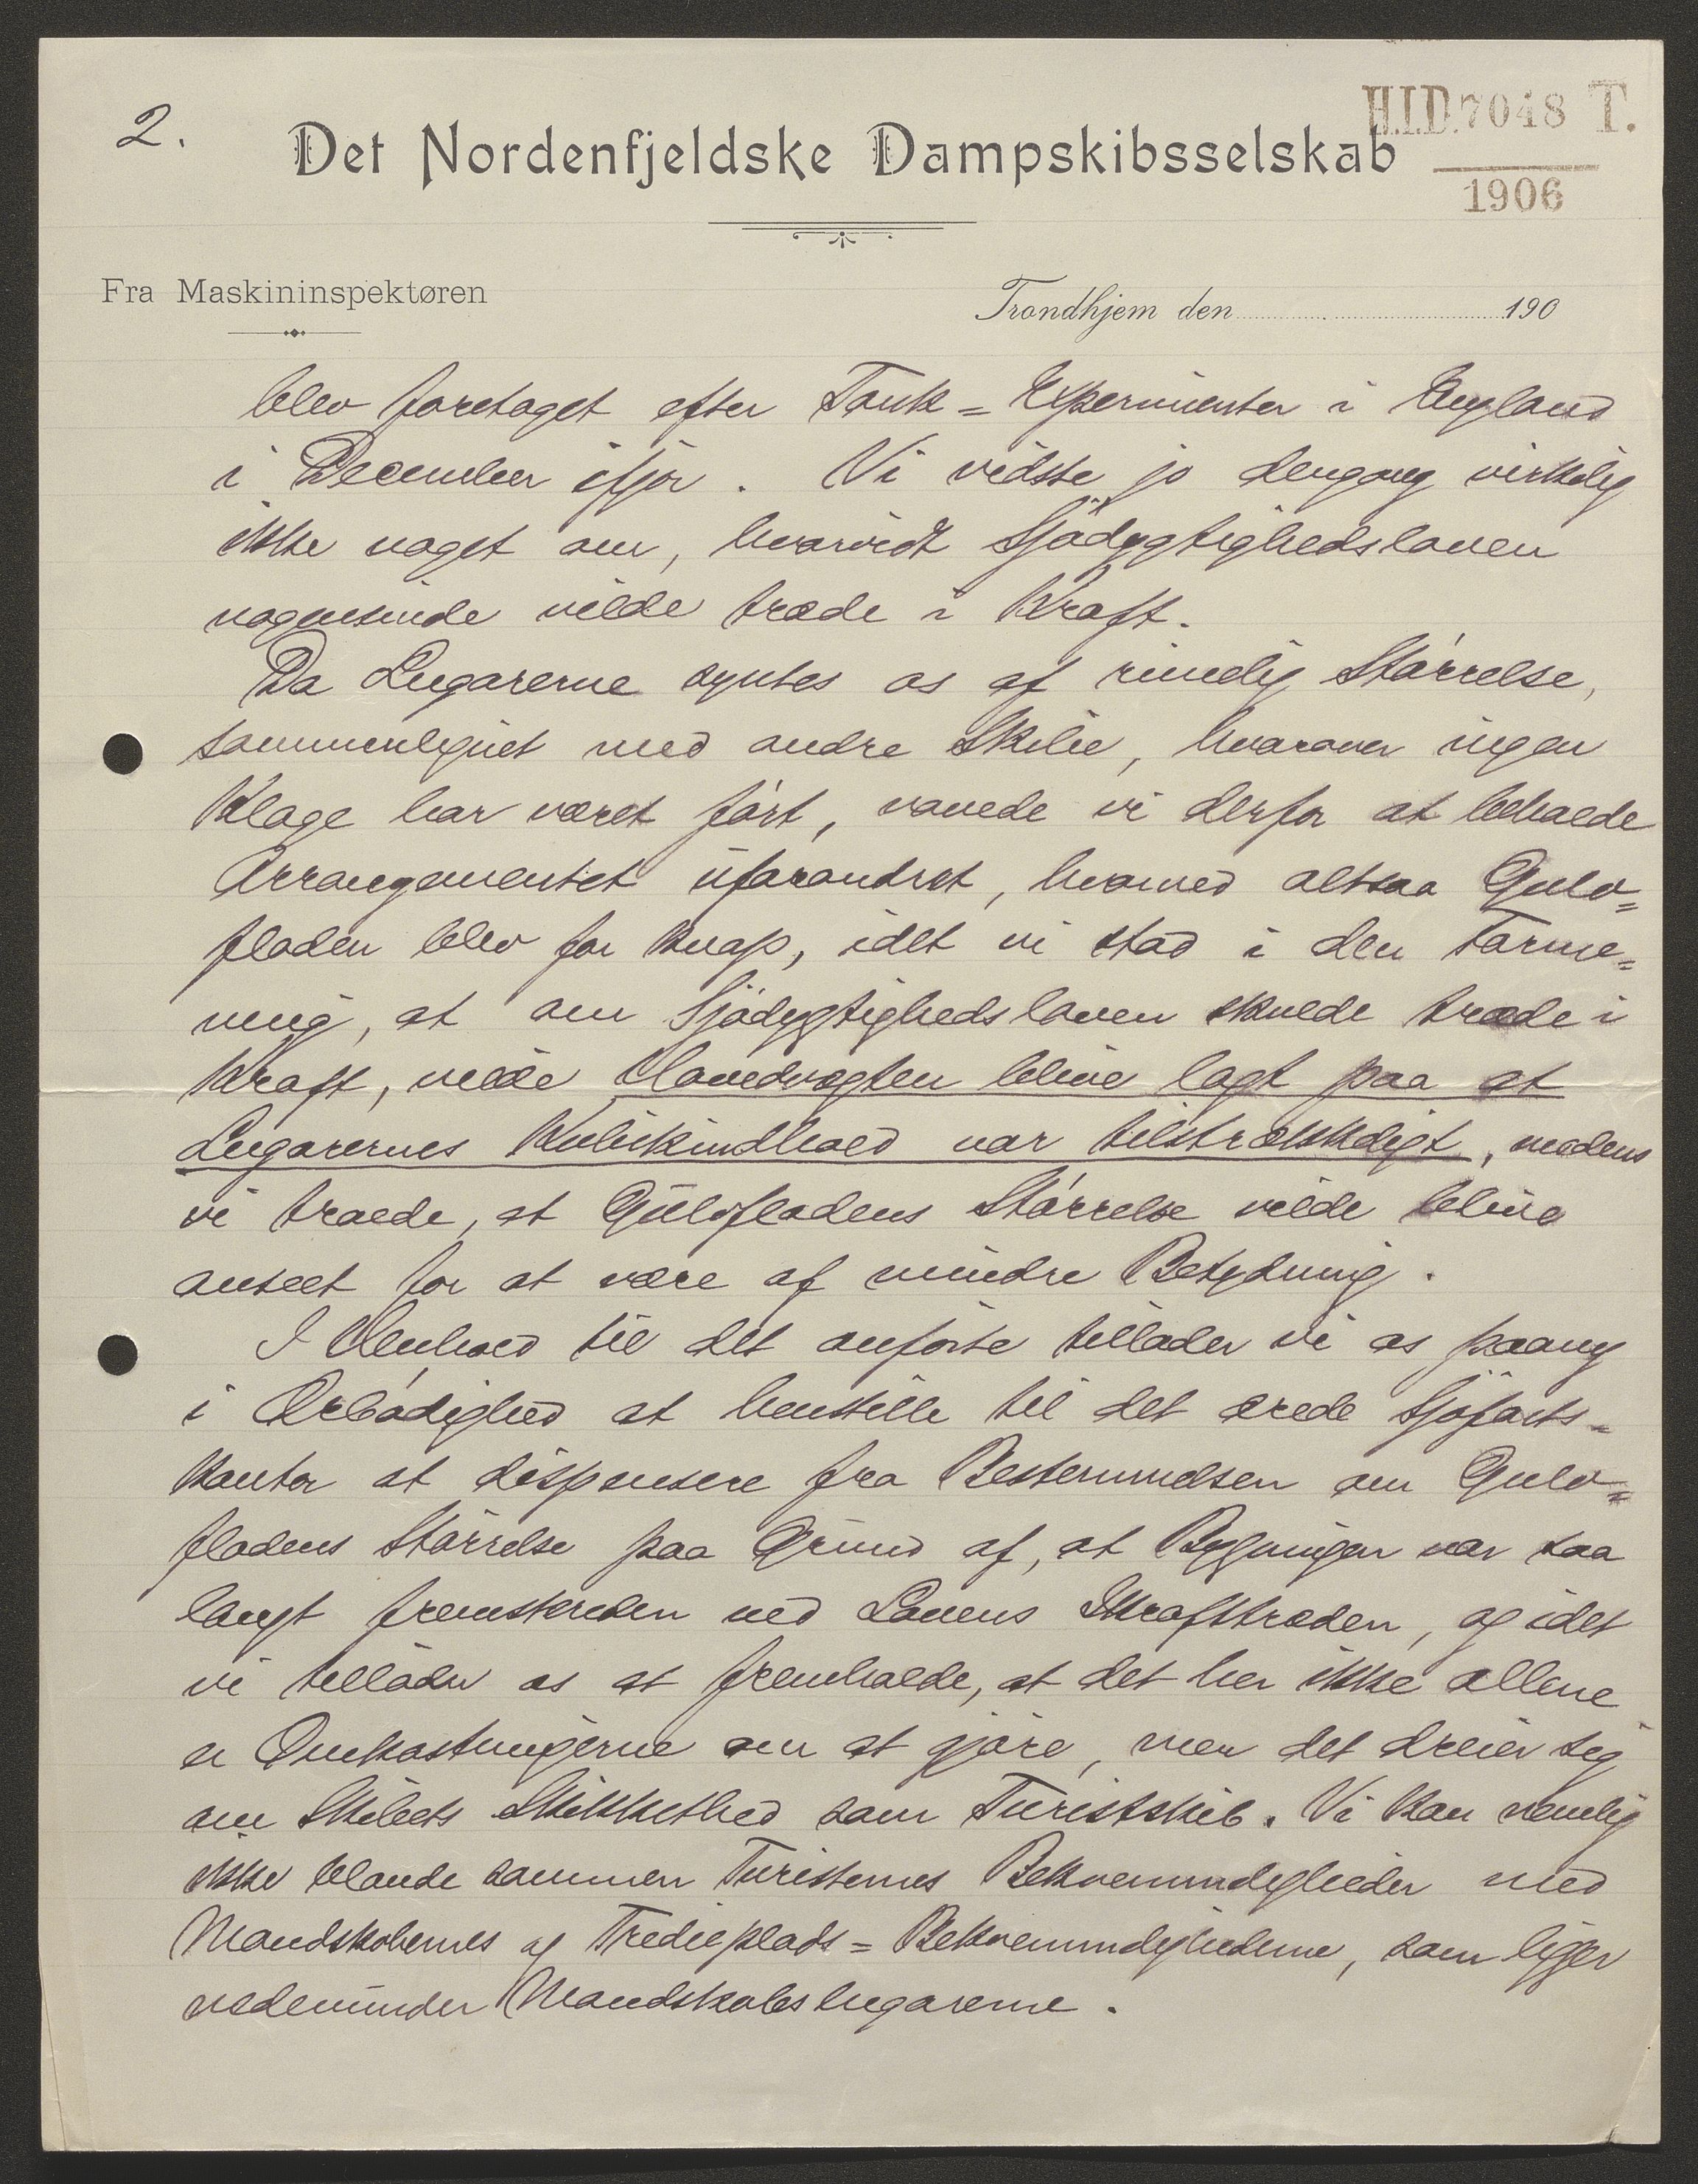 2.
H.I.D. 7048 T.
1906
Det Nordenfjeldske Dampskibsselskab
Fra Maskininspektøren
Trondhjem den 190
blev foretaget efter Tank=Experimenter i England
i December ifjor. Vi vidste jo dengang virkelig
ikke noget om, hvorvidt Sjødygtighedsloven
nogensinde vilde træde i Kraft.
Da Lugarerne syntes os af rimelig Størrelse,
sammenlignet med andre Skibe, hvorover ingen
Klage har været ført, vovede vi derfor at beholde
Arrangementet uforandret, hvorved altsaa Gulv=
fladen blev for knap, idet vi stod i den Forme=
ning, at om Sjødygtighedsloven skulde træde i
Kraft, vilde Hovedvægten blive lagt paa at
Lugarernes Kubikindhold var tilstrækkeligt, medens
vi troede, at Gulvfladens Størrelse vilde blive
anseet for at være af mindre Betydning.
I Henhold til det anførte tillader vi os paany
i Ærbødighed at henstille til det ærede Sjøfarts=
kontor at dispensere fra Bestemmelsen om Gulv=
fladens Størrelse paa Grund af, at Bygningen var saa
langt fremskreden ved Lovens Ikrafttræden, og idet
vi tillader os at fremholde, at det her ikke allene
er Omkostningerne om at gjøre, men det dreier sig
om Skibets Skikkethed som Turistskib. Vi kan nemlig
ikke blande sammen Turisternes Bekvemmeligheder med
Mandskabernes og Tredieplads=Bekvemmelighederne, som ligger
nedenunder Mandskabslugarerne.